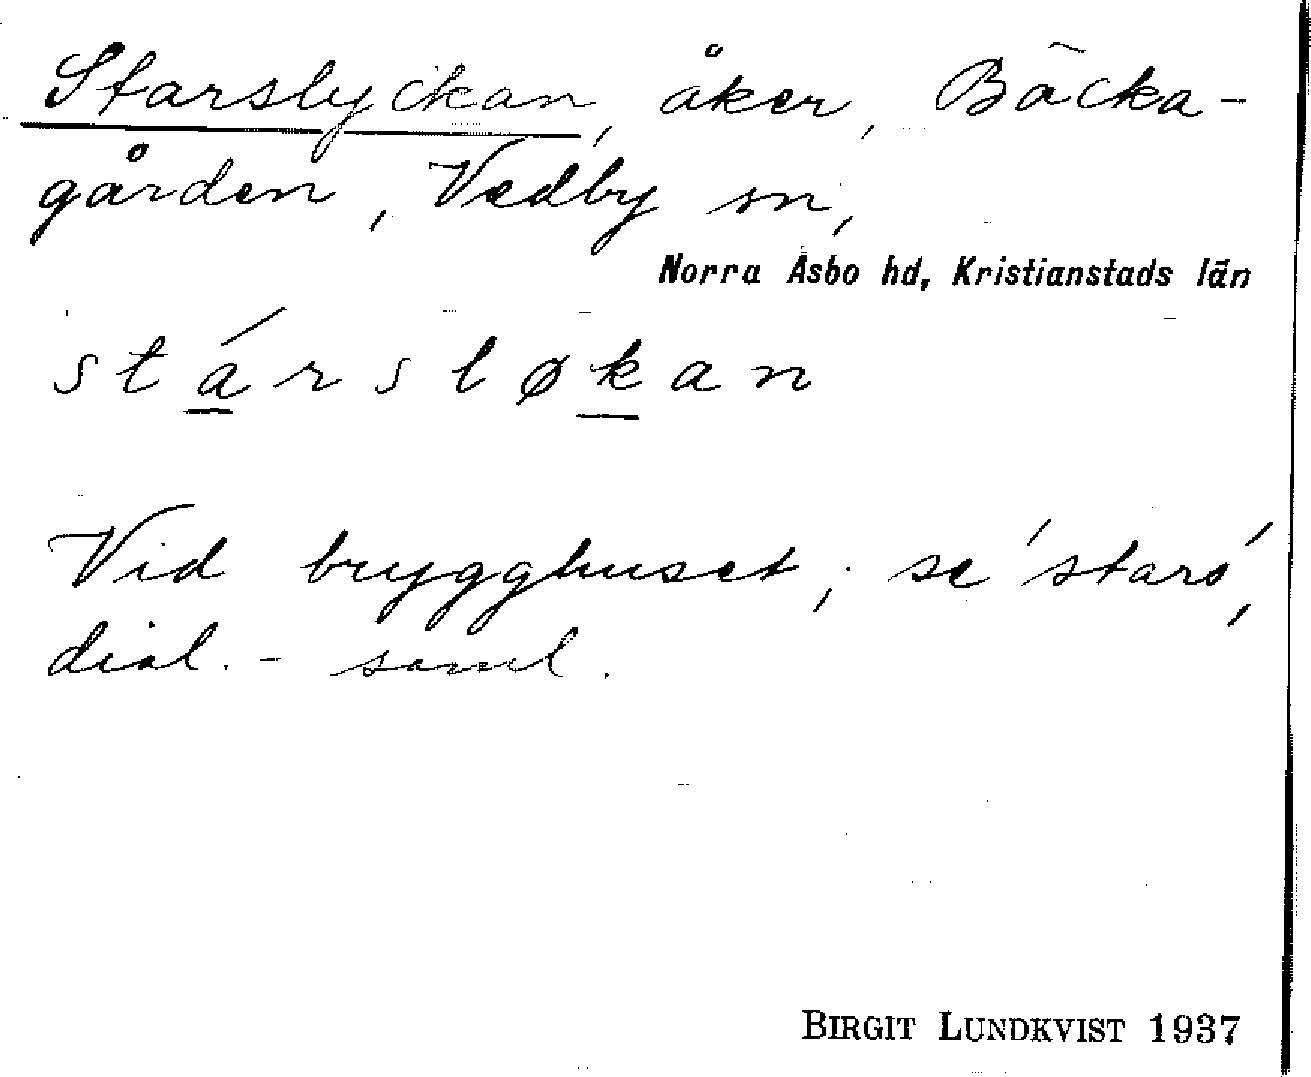 Starslyckan, åker, Bäcka-
gården, Vedby sn,
Norra Åsbo hd, Kristianstads län
stársløkan
Vid brygghuset; se 'stars',
dial.-saml.
BIRGIT LUNDKVIST 1937